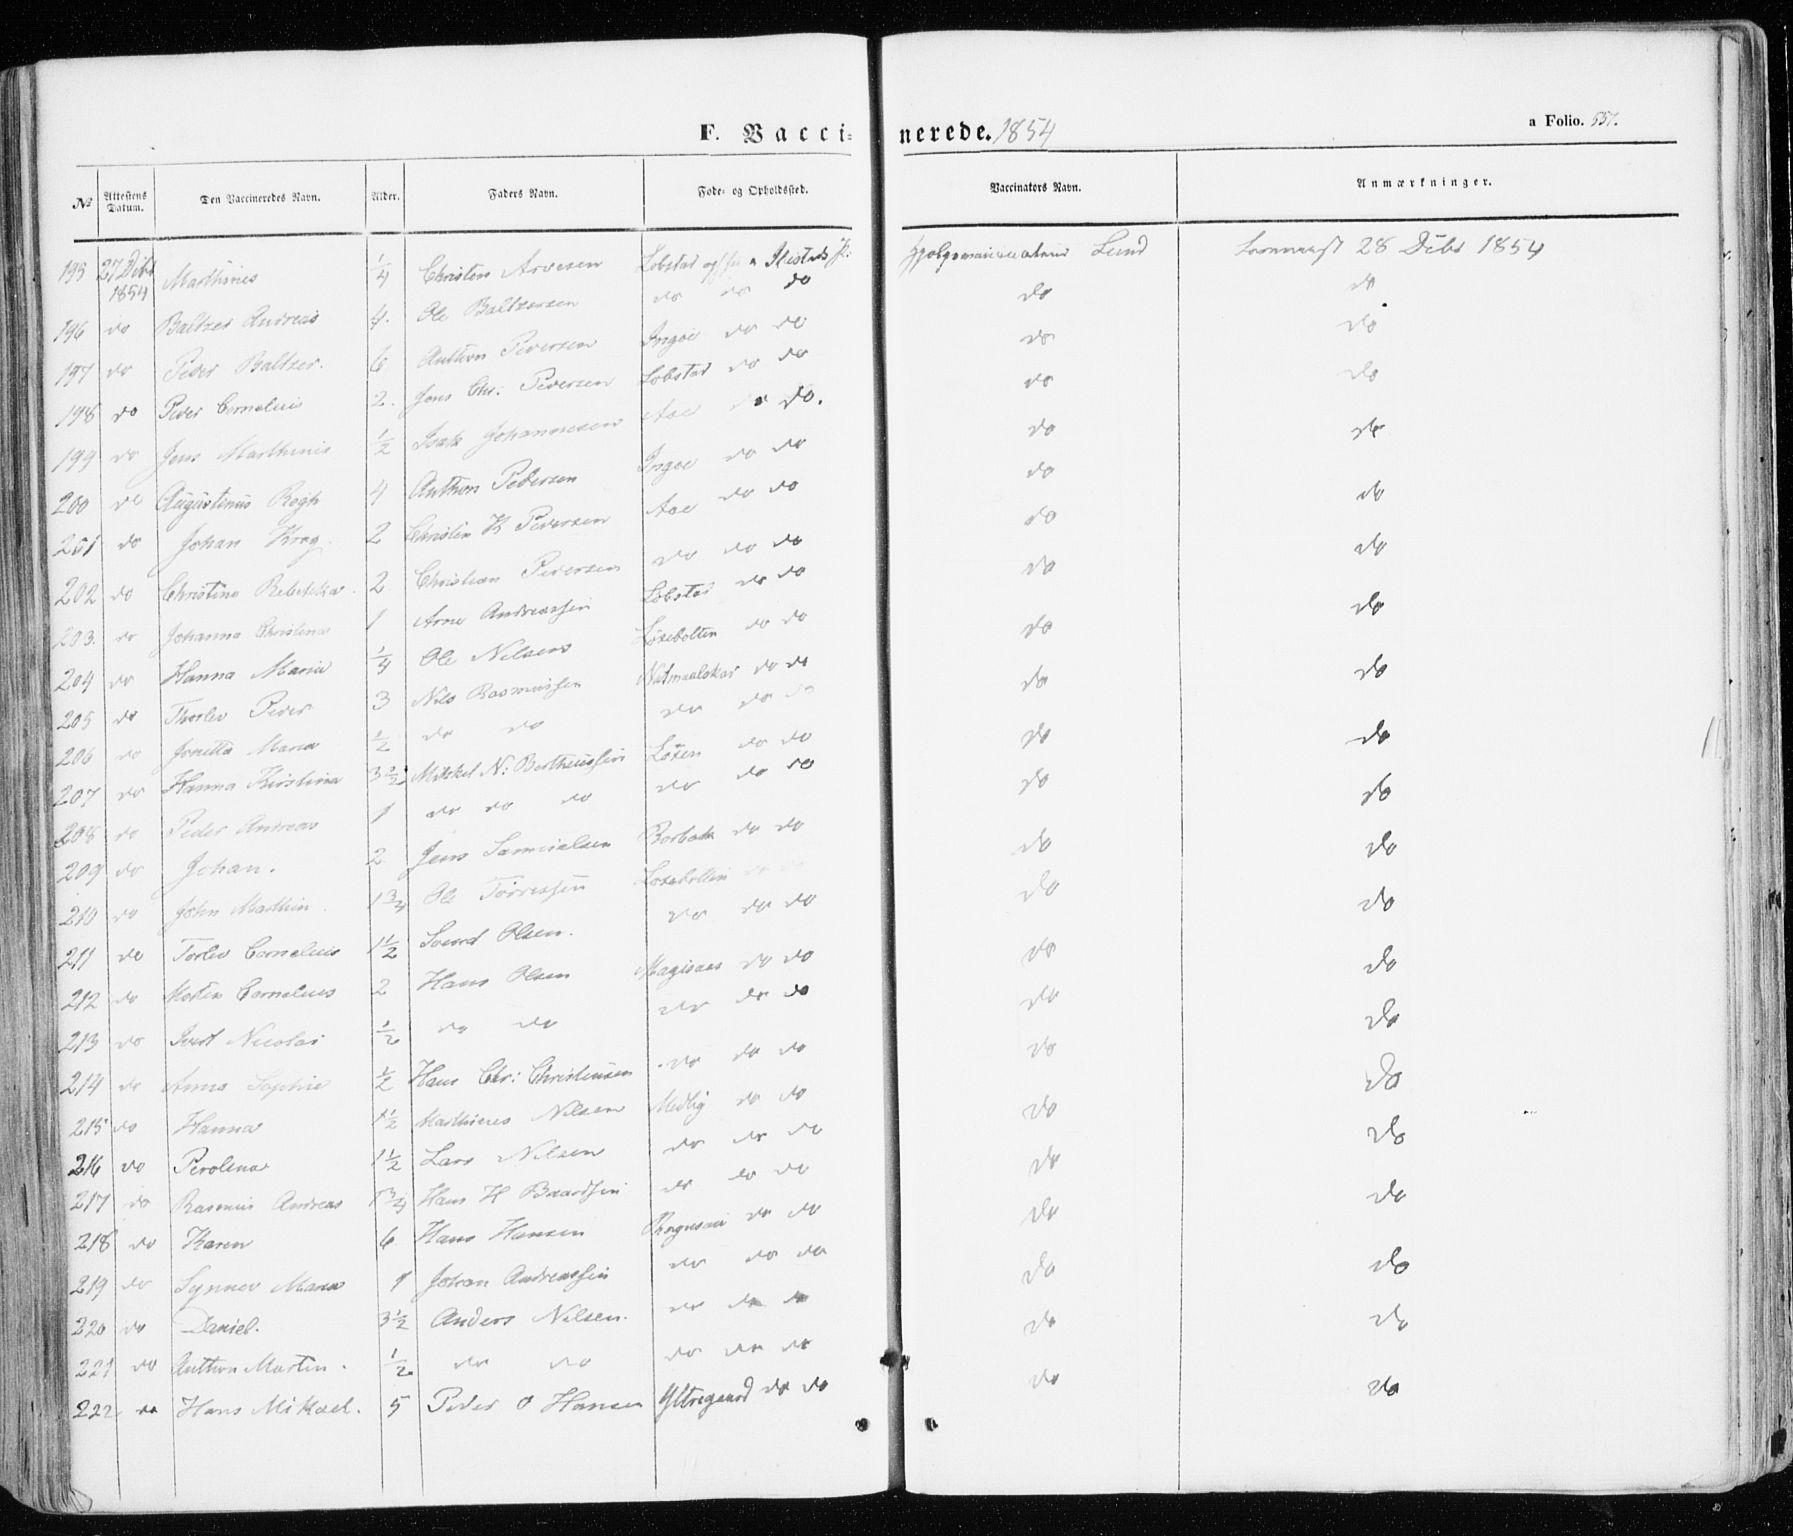 F. Vaccinerede. 1854
a Folio. 557.
No Attestens Datum. Den Vaccineredes Navn. Alder. Faders Navn. Føde- og Opholdssted. Vaccinators Navn. Anmærkninger.
195 27 Dcbr 1854 Marthines 1/4 Christen Lobstad Lund 28 Dcbr 1854
196 do Baltzer Andreas 4. Ole Baltzersen do do do do do
197 do Peder Baltzer. 6 Anthon Pedersen Ingøe do do do do
198 do Peder Cornelius 2. Jens Chr: Pedersen Lobstad do do do do
199 do Jens Marthinis 1/2 Isak Johannesen Aae do do. do do
200 do Augustinus Rogh 4 Anthon Pedersen Ingøe do do do do
201 do Johan Krog. 2 Christen K Pedersen Aae do do do do
202 do Christine Rebekka. 2 Christian Pedersen do do do do do
203. do Johanna Christena 1 Arne Andreassen Lobstad do do do do
204 do Hanna Maria 1/4 Ole Nilsens Løsebotten do do do do
205 do Thorlev Peder 3 Nils Rasmussen Natmaalskar do do do do
206 do Jonetta Maria 1/2 do do do do do do do
207 do Hanna Kirstina 3 1/2 Mikkel N: Bertheussen Løsen do do do do
208 do Peder Andreas 1 do do do do do do do do
209 do Johan. 2 Jens Samuelsen do do do do
210 do John Marthin 1 3/4 Ole Tørressen Løsebotten do do do do
211 do Torlev Cornelius 1 1/2 Svend Olsen. do do do do do
212 do Morten Cornelius 2 Hans Olsen do do do do
213 do Ivert Nicolai 1/2 do do do do do do do
214 do Anna Sophie 1/2 Hans Chr: Christensen do do do do do
215 do Hanna 1 1/2 Marthines Nilsen Medby do do do do
216 do Perolena 1 1/2 Lars Nilsen do do do do do
217 do Rasmus Andreas 1 3/4 Hans H Baardsen do do do do do
218 do Karen 6 Hans Hansen do do do do
219 do Synnev Maria 1 Johan Andreassen do do do do do
220 do Daniel. 3 1/2 Anders Nilsen. do do do do do
221 do Anthon Martin. 1/2 do do do do do do do
222 do Hans Mikael. 5 Peder O Hansen Yttregaard do do